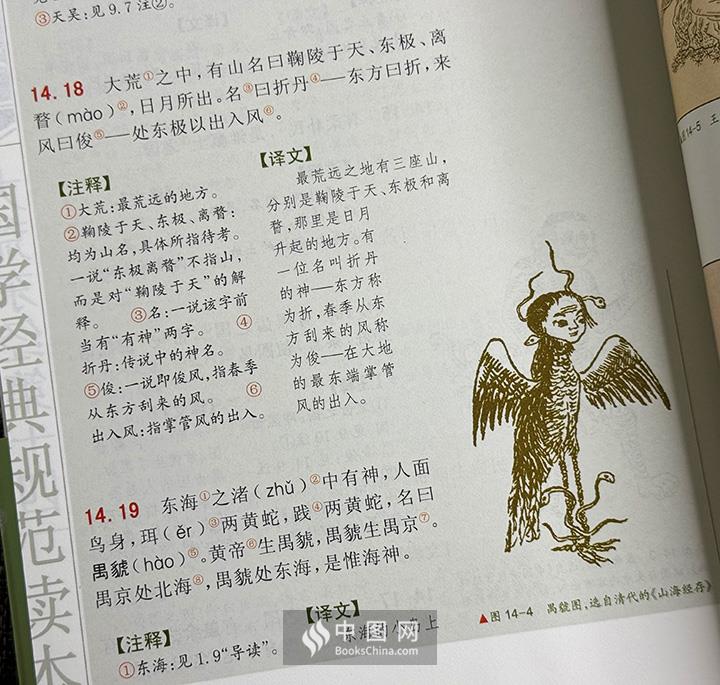 ③天吴：见9.7注②。
14.18 大荒①之中，有山名曰鞠陵于天、东极、离
瞀（mào）②，日月所出。名③曰折丹④——东方曰折，来
风曰俊⑤——处东极以出入风⑥。
【注释】
①大荒：最荒远的地方。
②鞠陵于天、东极、离瞀：
均为山名，具体所指待考。
一说“东极离瞀”不指山，
而是对“鞠陵于天”的解
释。 ③名：一说该字前
当有“有神”两字。 ④
折丹：传说中的神名。
⑤俊：一说即俊风，指春季
从东方刮来的风。 ⑥
出入风：指掌管风的出入。
【译文】
最荒远之地有三座山，
分别是鞠陵于天、东极和离
瞀，那里是日月
升起的地方。有
一位名叫折丹
的神——东方称
为折，春季从东
方刮来的风称
为俊——在大地
的最东端掌管
风的出入。
14.19 东海①之渚（zhǔ）②中有神，人面
鸟身，珥（ěr）③两黄蛇，践④两黄蛇，名曰
禺䝞（hào）⑤。黄帝⑥生禺䝞，禺䝞生禺京⑦。
禺京处北海⑧，禺䝞处东海，是惟海神。
【注释】
①东海：见1.9“导读”。
【译文】
东海的小岛上
▲图14-4 禺䝞图，选自清代的《山海经存》
图14-5 王
国学经典规范读本
中图网
BooksChina.com